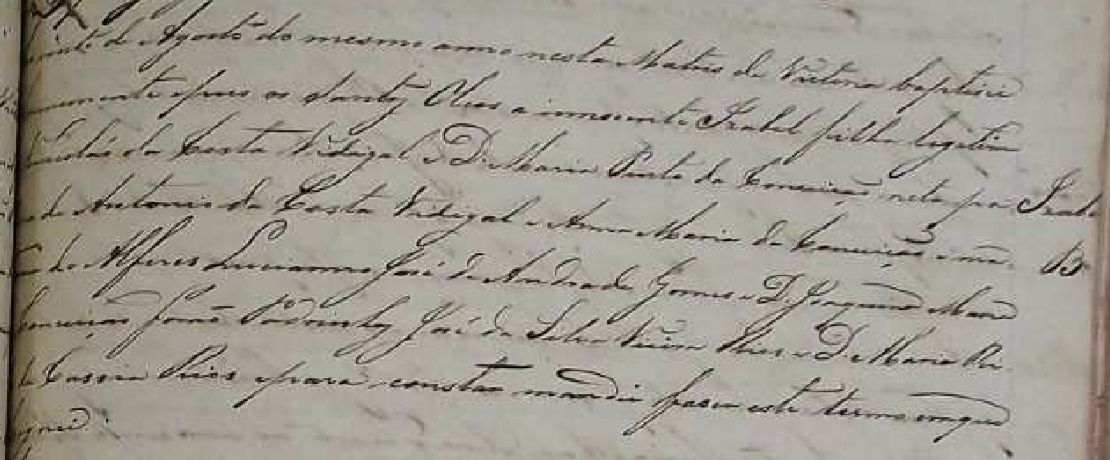 de Agosto do mesmo anno nesta Matris da Victoria baptisei
e pus os Santos Oleos a innocente Izabel filha legitima
da Costa Vidigal e D. Maria Pinta da Conceição neta pa
Izabel
de Antonio da Costa Vidigal e Anna Maria da Conceição e ma
B
do Alferes Lucianno José de Andrade Gomes e D. Joaquina Maria
Conceição forão Padrinhos José da Silva Vieira Rios e D. Maria Ri
de Cassia Rios e para constar mandei faser este termo em que
signei